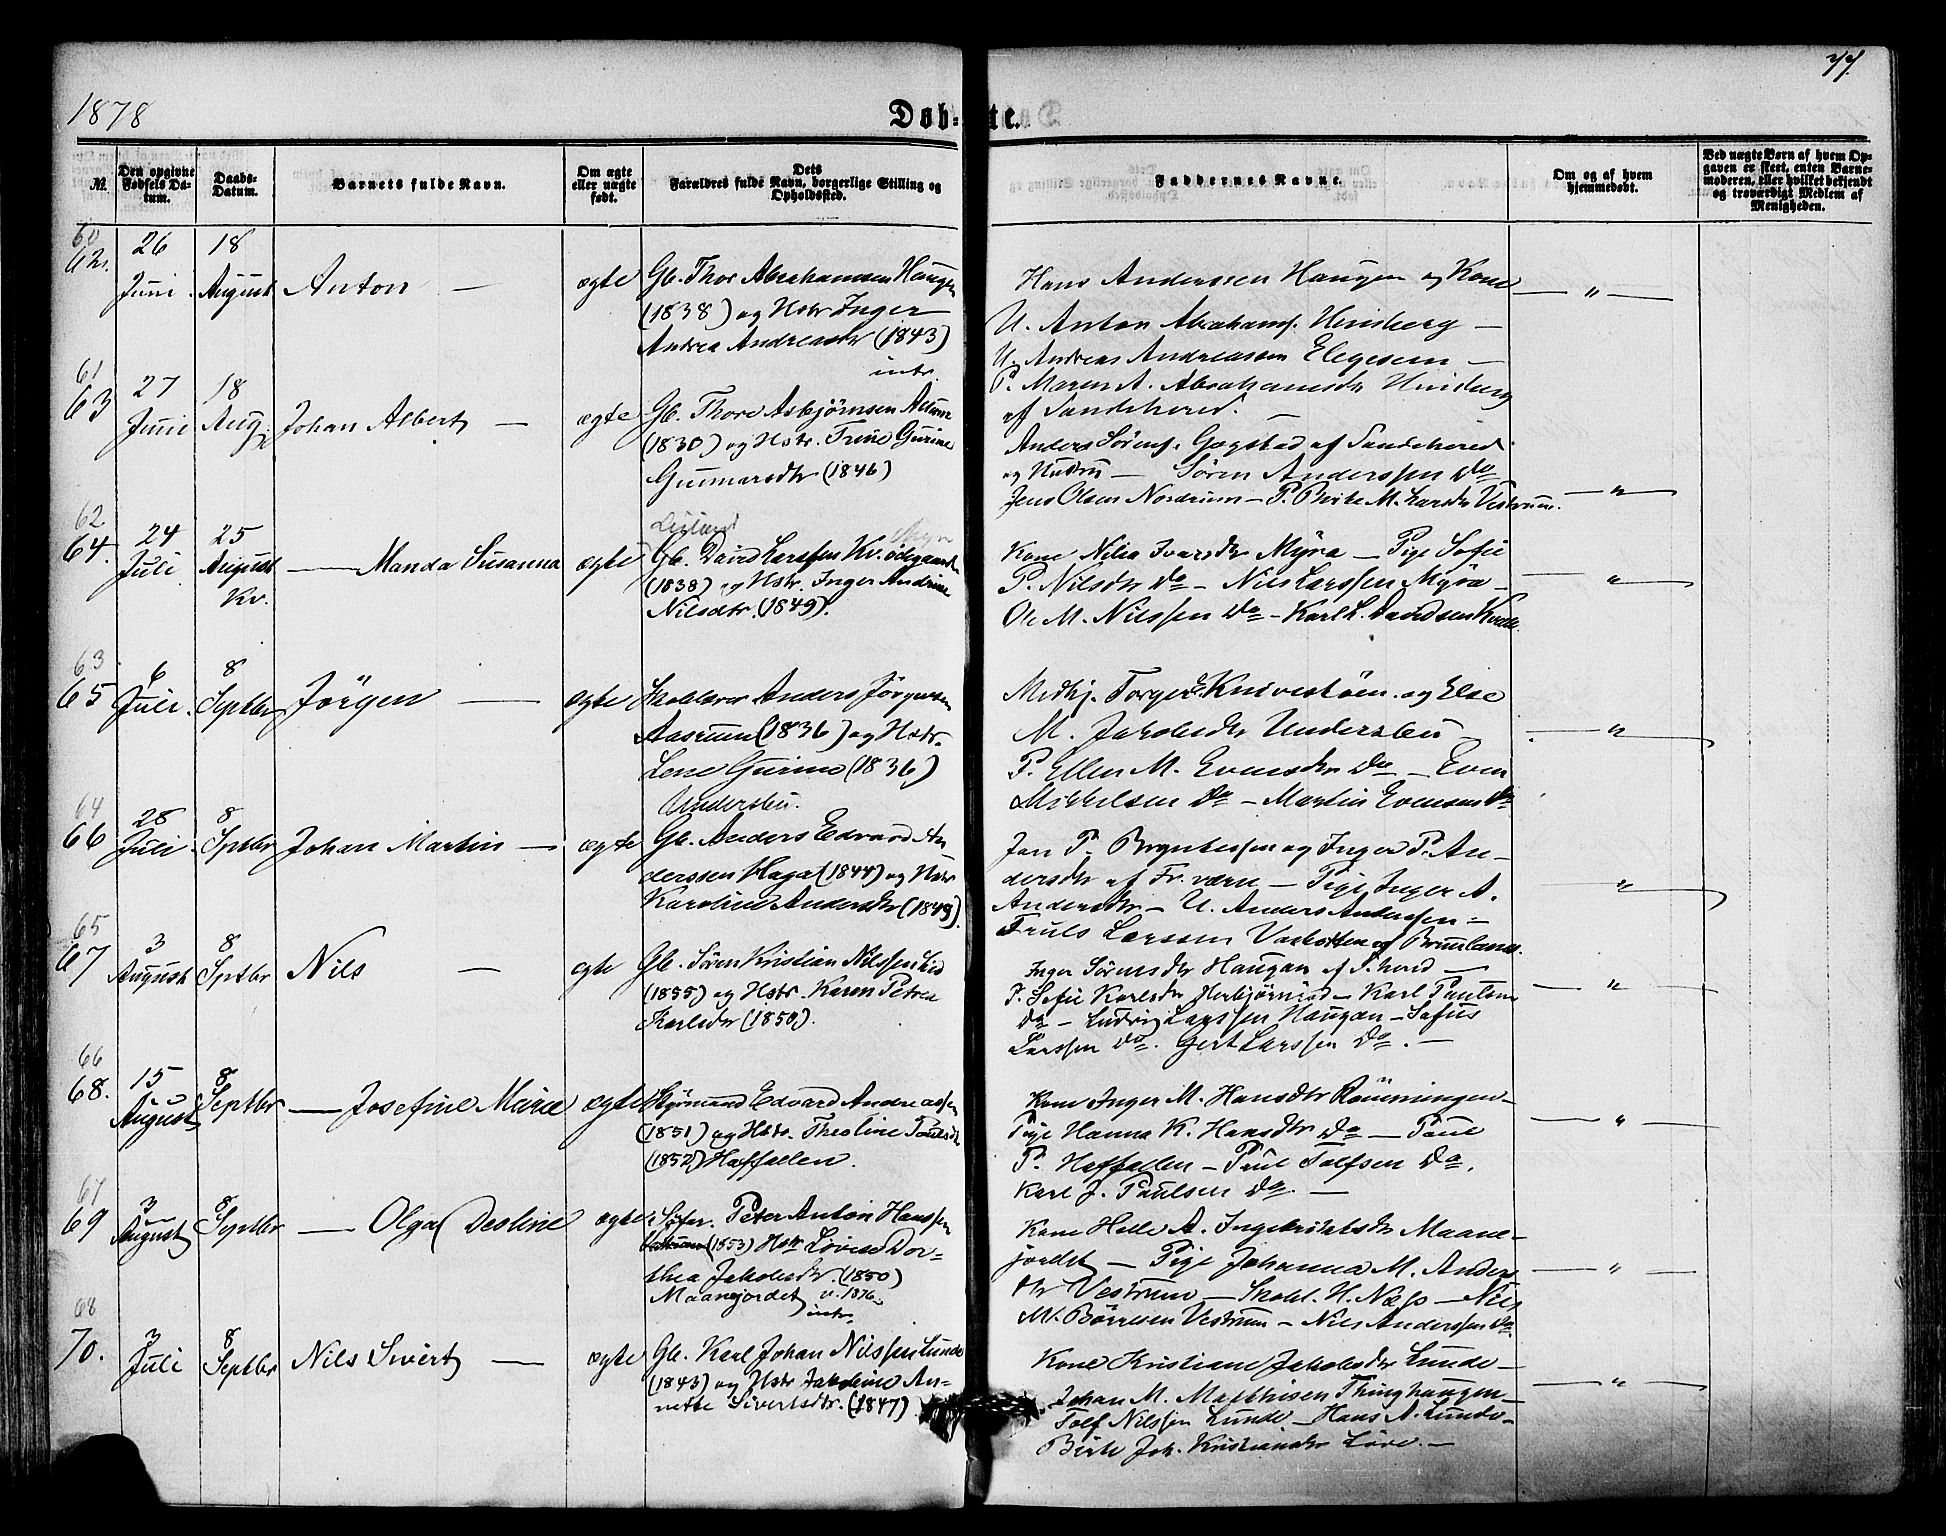 1878
77.
Døb-te.
№.
Den opgivne Fødsels Datum.
Daabs-Datum.
Barnets fulde Navn.
Om ægte eller uægte født.
Dets Forældres fulde Navn, borgerlige Stilling og Opholdssted.
Faddernes Navne.
Om og af hvem hjemmedøbt.
Ved uægte Børn af hvem Opgaven er skeet, enten Barnemoderen, eller hvilket bekjendt og troværdigt Medlem af Menigheden.
60
62.
26 Juni
18 August
Anton —
ægte
Gb. Thor Abrahamsen Haugen
(1838) og Hstr Inger
Andrea Andreasdtr (1843)
intr.
Hans Anderssen Haugen og Kone
U. Anton Abrahams. Hinsberg —
U. Andreas Andreassen Elgesem —
P. Maren A. Abrahamsdtr Hinsberg
af Sandeherred. —
— " —
61
63
27 Juni
18 Aug.
Johan Albert —
ægte
Gb. Thore Asbjørnsen
(1830) og Hstr. Trine Gurine
Gunnarsdtr (1846)
Anders Sørens. Gogstad af Sandeherred
og Hustru — Søren Anderssen Do
Jens Olsen Nordrum — P. Berte M. Larsdtr Vestrum.
— " —
62
64.
24 Juli
25 August Kv.
— Manda Susanna
ægte
Gb. David Larssen Kv. Ødegaard
(1838) og Hstr. Inger Andrine
Nilsdtr. (1849).
Kone Nilia Ivarsdtr Myra — Pige Sofie
P. Nilsdtr Do — Nils Larssen Myra —
Ole M. Nilssen Do — Karl L. Davidsen
— " —
63.
65
6 Juli.
8 Septbr
Jörgen —
ægte
Skolelærer Anders Jörgensen
Aasrum (1836) og Hstr.
Lene Gurine (1836)
Undersbu.
Medhj. Torger Knivestöen og Else
M. Jakobsdtr Undersbu —
P. Ellen M. Evensdtr Do — Even
Mikkelsen Do — Martin Evensen Do
— " —
64
66
28 Juli
8 Sptbr
Johan Martin —
ægte
Gb. Anders Edvard An-
derssen Haga (1844) og Hstr
Karoline Andersdtr (1849)
Jan P. Bryntessen og Inger P. An-
dersdtr af Fr. værn — Pige Inger A.
Andersdtr — U. Anders Anderssen —
Truls Larssen af Brunlanæs.
— " —
65
67
3 August
8 Sptbr
Nils —
egte
Gb. Søren Kristian Nilssen Lid
(1855) og Hstr. Karen Petrea
Karlsdtr (1850).
Inger Sørensdtr Haugan af S. herred —
P. Sofie Karlsdtr Herbjörnröd — Karl Paulsen
Do — Ludvig Larssen Haugan — Sofus
Larssen Do. Gert Larssen Do. —
— " —
66
68.
15 August
8 Septbr
— Josefine Marie
ægte
Edvard Andreassen
(1851) og Hstr. Theoline Paulsdtr
(1852) Haffallen.
Kone Inger M. Hansdtr Rönningen —
Pige Hanna K. Hansdtr Do — Paul
P. Haffallen — Paul Tolfsen Do.
Karl J. Paulsen Do. —
— " —
67
69
3 August
8 Septbr
— Olga Desline
ægte
Søfar. Peter Anton Hanssen
(1853) Hstr Lovise Dor-
thea Jakobsdtr. (1850)
Maanejordet v. 1876.
intr.
Kone Helle A. Ingebritsdtr Maane-
jordet — Pige Johanna M. Anders
dtr Vestrum — Skoel. H. Næss — Nils
M. Börresen Vestrum — Nils Anderssen Do
— " —
68
70.
3 Juli
8 Septbr
Nils Sivert —
ægte
Gb. Karl Johan Nilssen Lunde
(1843) og Hstr Jakobine An-
nette Sivertsdtr. (1847)
Kone Kristiane Jakobsdtr Lunde —
Johan M. Matthisen Thinghaugen —
Tolf Nilssen Lunde — Hans A. Lunde —
Birte Joh. Kristiansdtr Löve. —
— " —